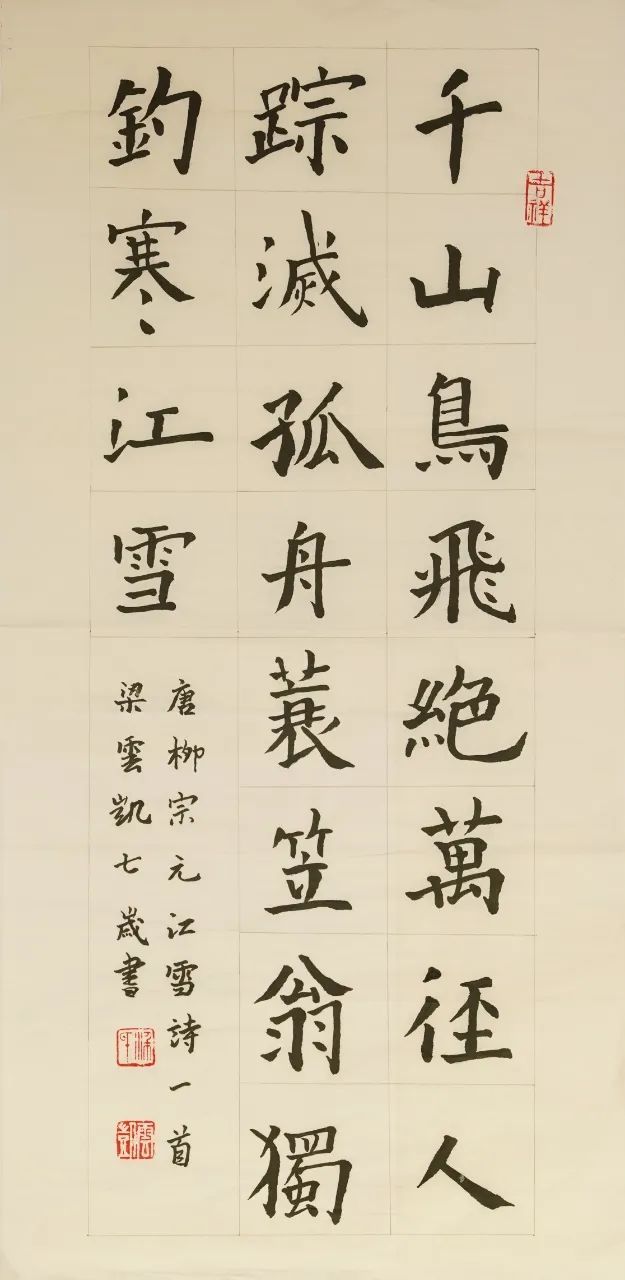 千山鳥飛絶萬徑人
踪滅孤舟蓑笠翁獨
釣寒江雪
唐栁宗元江雪詩一首
梁雲凱七歲書
吉祥